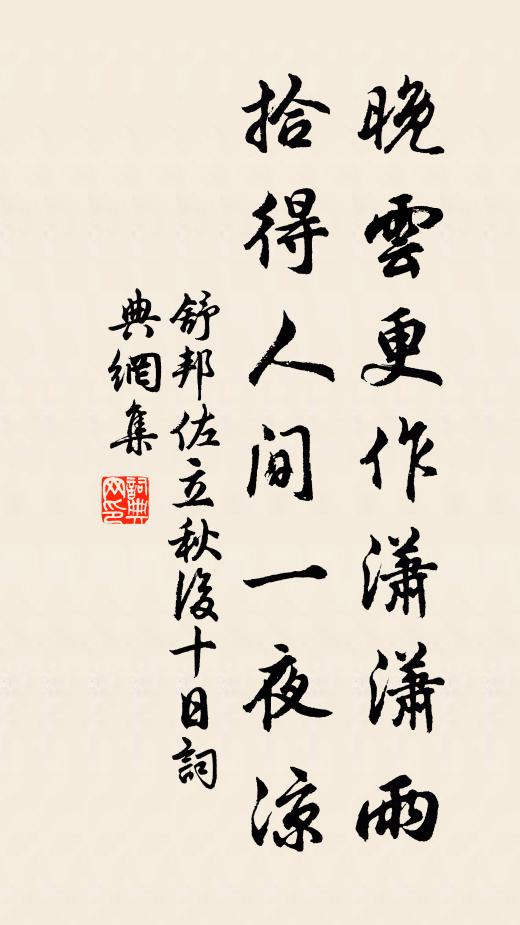 晚雲更作瀟瀟雨
拾得人间一夜凉
舒邦佐立秋後十日詞
典網集
詞典
网印